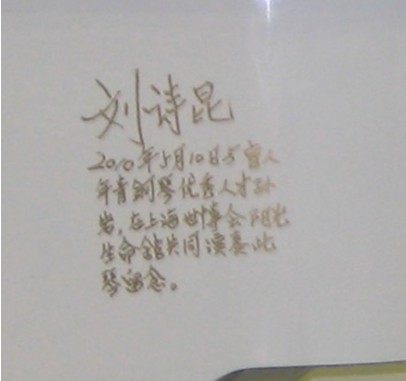 刘诗昆
2010年5月10日与盲人
年青钢琴优秀人才孙
岩,在上海世博会阳光
生命馆共同演奏此
琴留念。